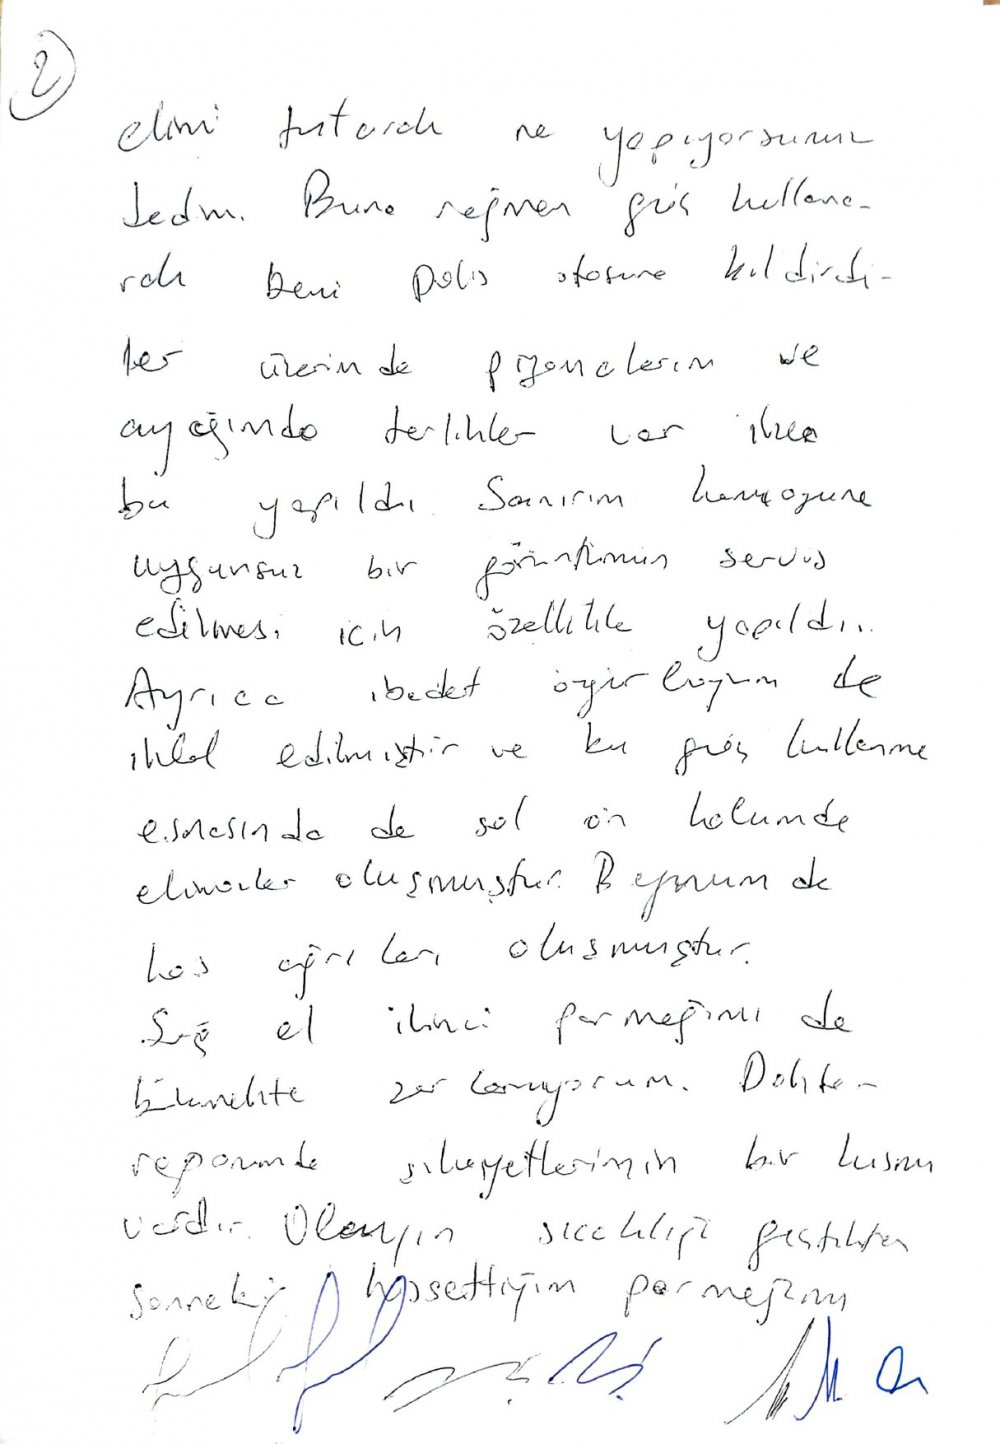 2
elimi tutarak ne yapıyorsunuz
dedim. Buna rağmen güç kullana-
rak beni polis otosuna bıldirdi-
ler üzerimde pijamalarım ve
ayağımda terlikler var iken
bu yapıldı. Sanırım kamuoyuna
uygunsuz bir görüntümün servis
edilmesi için özellikle yapıldı..
Ayrıca ibadet özgürlüğüm de
ihlal edilmiştir ve bu güç kullanma
esnasında da sol ön kolumda
oluşmuştur. Boynumda
kas ağrıları oluşmuştur.
Sağ el ikinci parmağımı da
bükmekte zorlanıyorum. Doktor
raporunda şikayetlerimin bir kısmı
vardır. Olayın sıcaklığı geçtikten
sonraki hissettiğim parmağımı